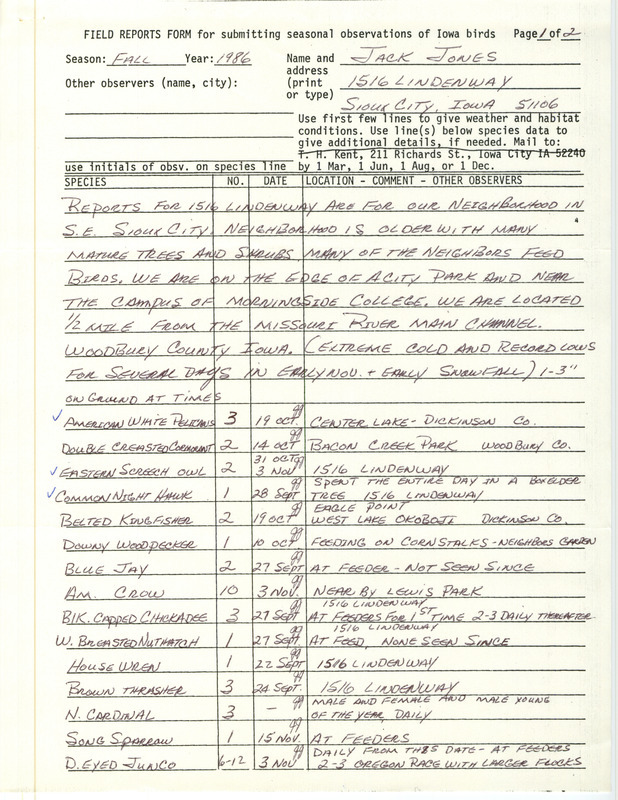 FIELD REPORTS FORM for submitting seasonal observations of Iowa birds Page 1 of 2
Season: FALL Year: 1986 Name and JACK JONES
address
Other observers (name, city): (print 1516 LINDENWAY
or type)
SIOUX CITY, IOWA 51106
Use first few lines to give weather and habitat
conditions. Use line(s) below species data to
give additional details, if needed. Mail to:
T. H. Kent, 211 Richards St., Iowa City IA 52240
use initials of obsv. on species line by 1 Mar, 1 Jun, 1 Aug, or 1 Dec.
SPECIES NO. DATE LOCATION - COMMENT - OTHER OBSERVERS
REPORTS FOR 1516 LINDENWAY ARE FOR OUR NEIGHBORHOOD IN
S.E. SIOUX CITY. NEIGHBORHOOD IS OLDER WITH MANY
MATURE TREES AND SHRUBS MANY OF THE NEIGHBORS FEED
BIRDS. WE ARE ON THE EDGE OF A CITY PARK AND NEAR
THE CAMPUS OF MORNINGSIDE COLLEGE. WE ARE LOCATED
1/2 MILE FROM THE MISSOURI RIVER MAIN CHANNEL.
WOODBURY COUNTY IOWA. (EXTREME COLD AND RECORD LOWS
FOR SEVERAL DAYS IN EARLY NOV. + EARLY SNOWFALL) 1-3"
ON GROUND AT TIMES
✓ AMERICAN WHITE PELICANS 3 19 OCT JJ CENTER LAKE - DICKINSON CO.
DOUBLE CREASTED CORMORANT 2 14 OCT JJ BACON CREEK PARK WOODBURY CO.
31 OCT JJ
✓ EASTERN SCREECH OWL 2 3 NOV 1516 LINDENWAY
SPENT THE ENTIRE DAY IN A BOXELDER
✓ COMMON NIGHT HAWK 1 28 SEPT JJ TREE 1516 LINDENWAY
EAGLE POINT
BELTED KINGFISHER 2 19 OCT JJ WEST LAKE OKOBOJI DICKINSON CO.
DOWNY WOODPECKER 1 10 OCT JJ FEEDING ON CORNSTALKS - NEIGHBORS GARDEN
BLUE JAY 2 27 SEPT JJ AT FEEDER - NOT SEEN SINCE
AM. CROW 10 3 NOV. JJ NEAR BY LEWIS PARK
1516 LINDENWAY
BLK. CAPPED CHICKADEE 3 27 SEPT JJ AT FEEDERS FOR 1ST TIME 2-3 DAILY THEREAFTER
1516 LINDENWAY
W. BREASTED NUTHATCH 1 27 SEPT JJ AT FEED, NONE SEEN SINCE
HOUSE WREN 1 22 SEPT JJ 1516 LINDENWAY
BROWN THRASHER 3 24 SEPT. JJ 1516 LINDENWAY
MALE AND FEMALE AND MALE YOUNG
N. CARDINAL 3 - JJ OF THE YEAR, DAILY
SONG SPARROW 1 15 NOV. JJ AT FEEDERS
DAILY FROM THIS DATE - AT FEEDERS
D. EYED JUNCO 6-12 3 NOV JJ 2-3 OREGON RACE WITH LARGER FLOCKS